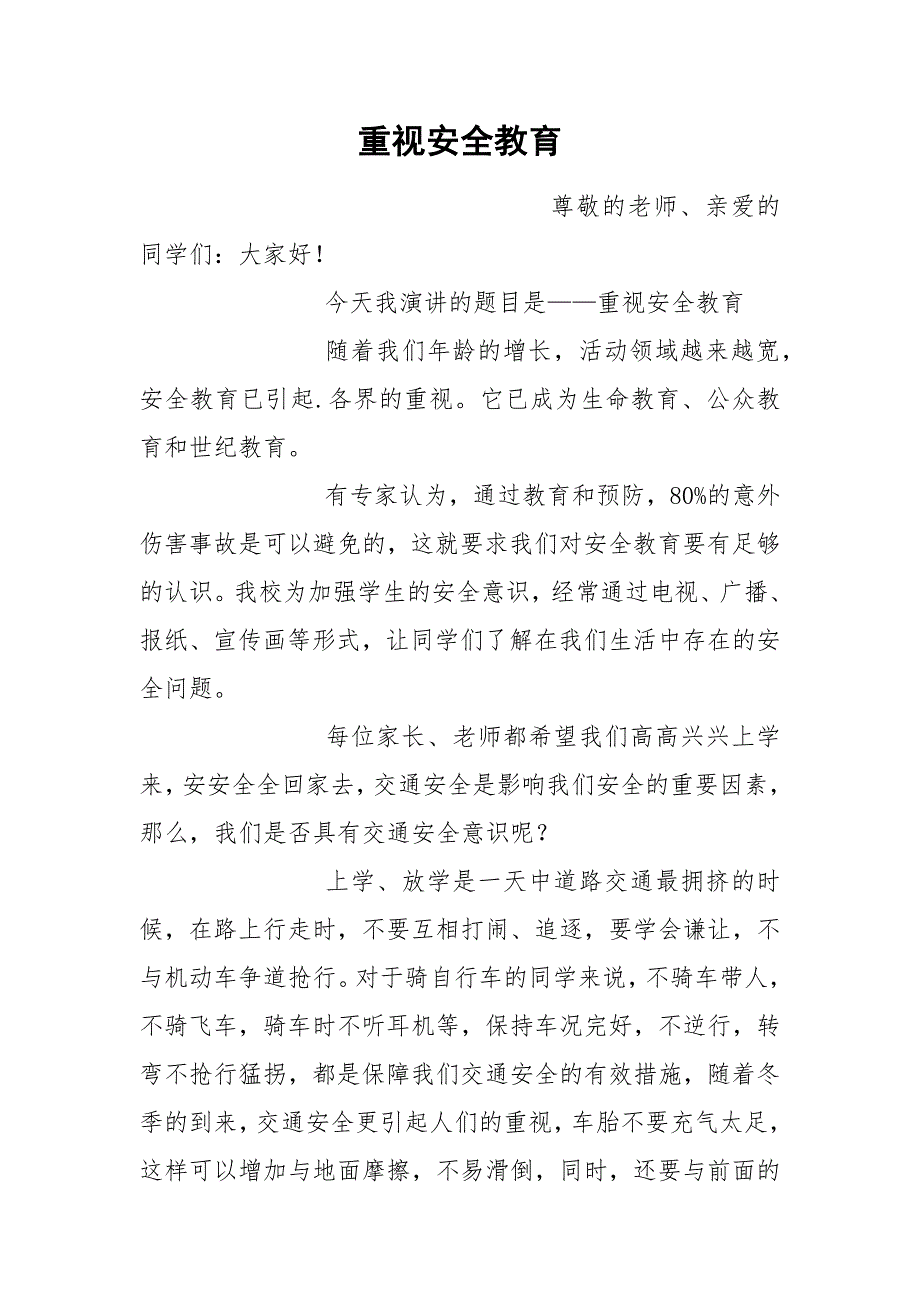 重视安全教育
尊敬的老师、亲爱的
同学们：大家好！
今天我演讲的题目是——重视安全教育
随着我们年龄的增长，活动领域越来越宽，
安全教育已引起.各界的重视。它已成为生命教育、公众教
育和世纪教育。
有专家认为，通过教育和预防，80%的意外
伤害事故是可以避免的，这就要求我们对安全教育要有足够
的认识。我校为加强学生的安全意识，经常通过电视、广播、
报纸、宣传画等形式，让同学们了解在我们生活中存在的安
全问题。
每位家长、老师都希望我们高高兴兴上学
来，安安全全回家去，交通安全是影响我们安全的重要因素，
那么，我们是否具有交通安全意识呢？
上学、放学是一天中道路交通最拥挤的时
候，在路上行走时，不要互相打闹、追逐，要学会谦让，不
与机动车争道抢行。对于骑自行车的同学来说，不骑车带人，
不骑飞车，骑车时不听耳机等，保持车况完好，不逆行，转
弯不抢行猛拐，都是保障我们交通安全的有效措施，随着冬
季的到来，交通安全更引起人们的重视，车胎不要充气太足，
这样可以增加与地面摩擦，不易滑倒，同时，还要与前面的